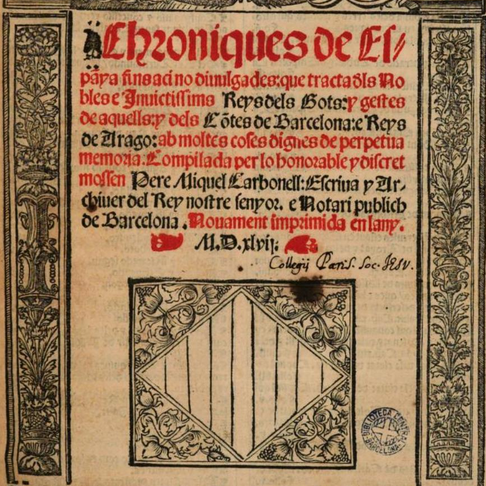 Chroniques de Es/
pãya fins ací no diuulgades: que tracta d̃ls No
bles e Inuictissims Reys dels Gots: y gestes
de aquells: y dels Cõtes de Barcelona: e Reys
de Arago: ab moltes coses dignes de perpetua
memoria. Compilada per lo honorable y discret
mossen Pere Miquel Carbonell: Escriua y Ar-
chiuer del Rey nostre senyor. e Notari publich
de Barcelona. Nouament imprimida en lany.
M.D.xlvij.
Collegij Paris. Soc. JESV.
BIBLIOTECA